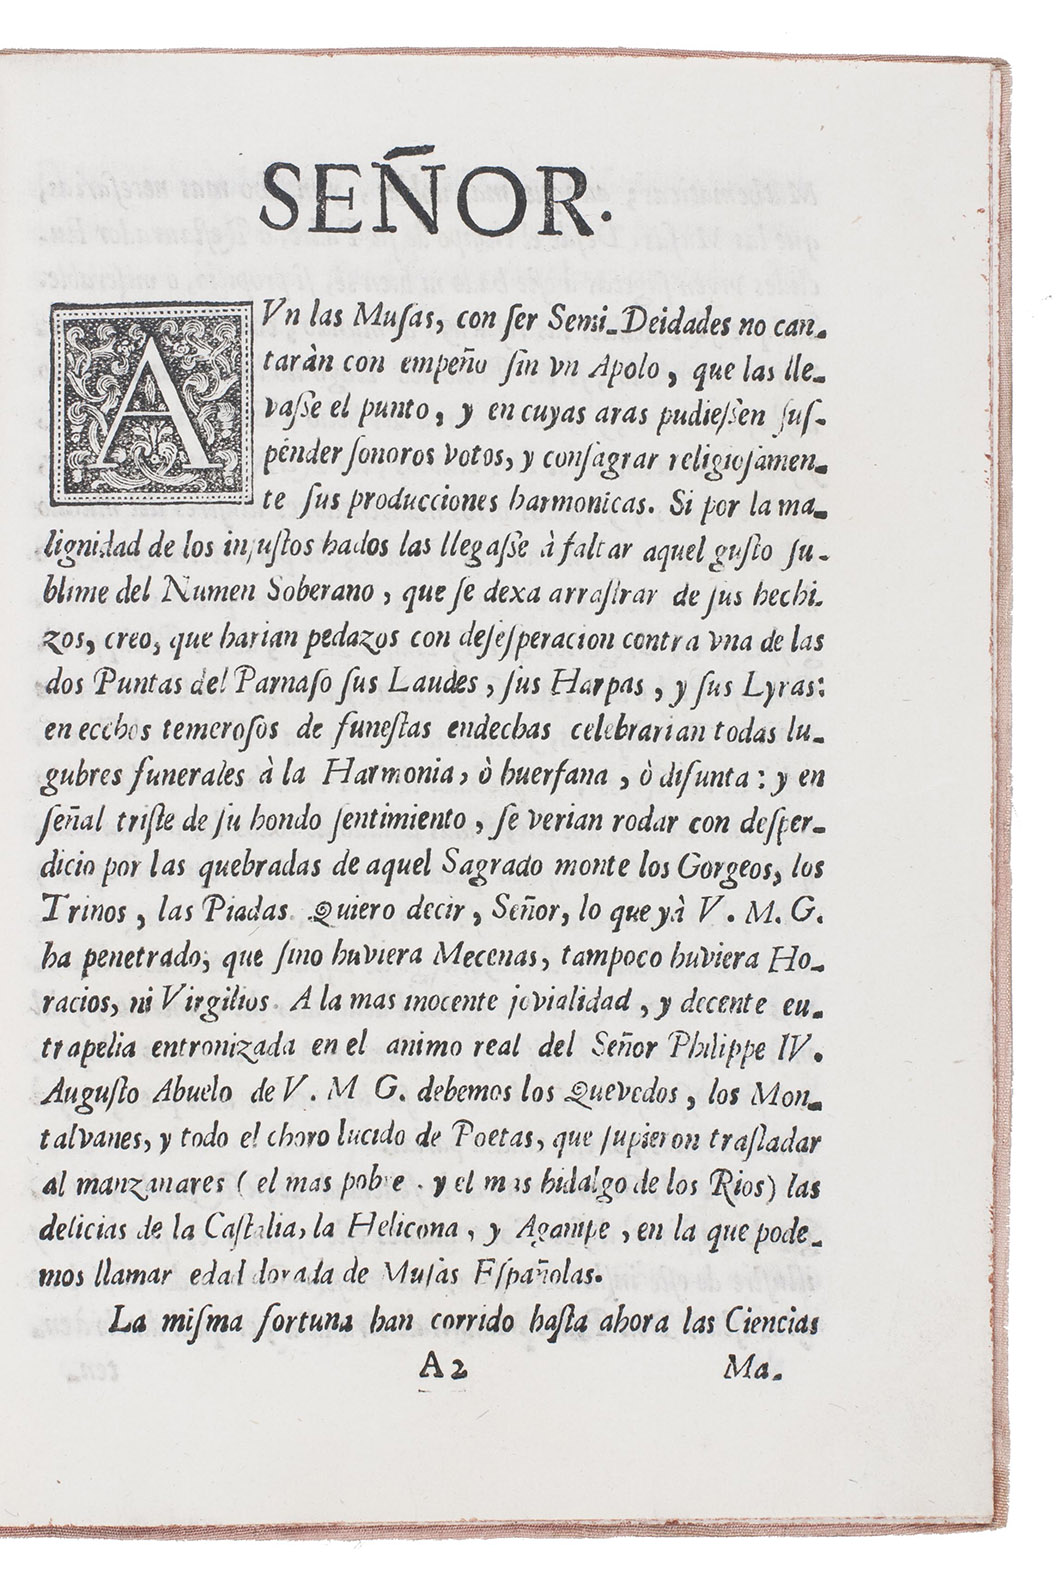 SEÑOR.
AVn las Muſas, con ſer Semi-Deidades no can-
taràn con empeño ſin vn Apolo, que las lle-
vaſſe el punto, y en cuyas aras pudieſſen ſuſ-
pender ſonoros votos, y conſagrar religioſamen-
te ſus producciones harmonicas. Si por la ma-
lignidad de los injuſtos hados las llegaſſe à faltar aquel guſto ſu-
blime del Numen Soberano, que ſe dexa arraſtrar de ſus hechi-
zos, creo, que harian pedazos con deſeſperacion contra vna de las
dos Puntas del Parnaſo ſus Laudes, ſus Harpas, y ſus Lyras:
en ecchos temeroſos de funeſtas endechas celebrarian todas lu-
gubres funerales à la Harmonia, ò huerfana, ò difunta: y en
ſeñal triſte de ſu hondo ſentimiento, ſe verian rodar con deſper-
dicio por las quebradas de aquel Sagrado monte los Gorgeos, los
Trinos, las Piadas. Quiero decir, Señor, lo que yà V. M. G.
ha penetrado, que ſino huviera Mecenas, tampoco huviera Ho-
racios, ni Virgilios. A la mas inocente jovialidad, y decente eu-
trapelia entronizada en el animo real del Señor Philippe IV.
Auguſto Abuelo de V. M G. debemos los Quevedos, los Mon-
talvanes, y todo el choro lucido de Poetas, que ſupieron traſladar
al manzanares ( el mas pobre . y el mas hidalgo de los Rios) las
delicias de la Caſtalia, la Helicona, y Aganipe, en la que pode-
mos llamar edad dorada de Muſas Eſpañolas.
La miſma fortuna han corrido haſta ahora las Ciencias
A2 Ma-